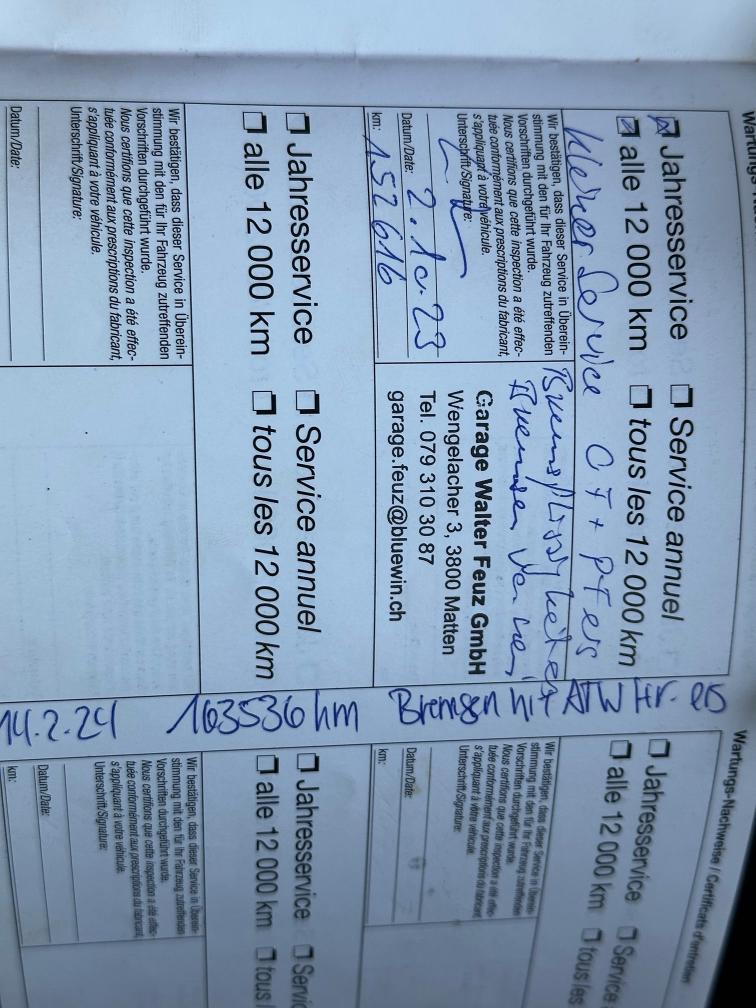 Wartungs-
Jahresservice Service annuel
alle 12 000 km tous les 12 000 km
Kleiner Service
Wir bestätigen, dass dieser Service in Überein-
stimmung mit den für Ihr Fahrzeug zutreffenden
Vorschriften durchgeführt wurde.
Nous certifions que cette inspection a été effec-
tuée conformément aux prescriptions du fabricant,
s'appliquant à votre véhicule.
Unterschrift/Signature:
Datum/Date: 2.10.23
km: 152616
Bremsflüssigkeit
Bremsen
Garage Walter Feuz GmbH
Wengelacher 3, 3800 Matten
Tel. 079 310 30 87
garage.feuz@bluewin.ch
Jahresservice Service annuel
alle 12 000 km tous les 12 000 km
Wir bestätigen, dass dieser Service in Überein-
stimmung mit den für Ihr Fahrzeug zutreffenden
Vorschriften durchgeführt wurde.
Nous certifions que cette inspection a été effec-
tuée conformément aux prescriptions du fabricant,
s'appliquant à votre véhicule.
Unterschrift/Signature:
Datum/Date:
14.2.24 163536 km Bremsen
Wartungs-Nachweise / Certificats d'entretien
Jahresservice Service
alle 12 000 km tous les
Wir bestätigen, dass dieser Service in Überein-
stimmung mit den für Ihr Fahrzeug zutreffenden
Vorschriften durchgeführt wurde.
Nous certifions que cette inspection a été effec-
tuée conformément aux prescriptions du fabricant,
s'appliquant à votre véhicule.
Unterschrift/Signature:
Datum/Date:
km:
Jahresservice Servic
alle 12 000 km tous
Wir bestätigen, dass dieser Service in Überein-
stimmung mit den für Ihr Fahrzeug zutreffenden
Vorschriften durchgeführt wurde.
Nous certifions que cette inspection a été effec-
tuée conformément aux prescriptions du fabricant,
s'appliquant à votre véhicule.
Unterschrift/Signature:
Datum/Date:
km: